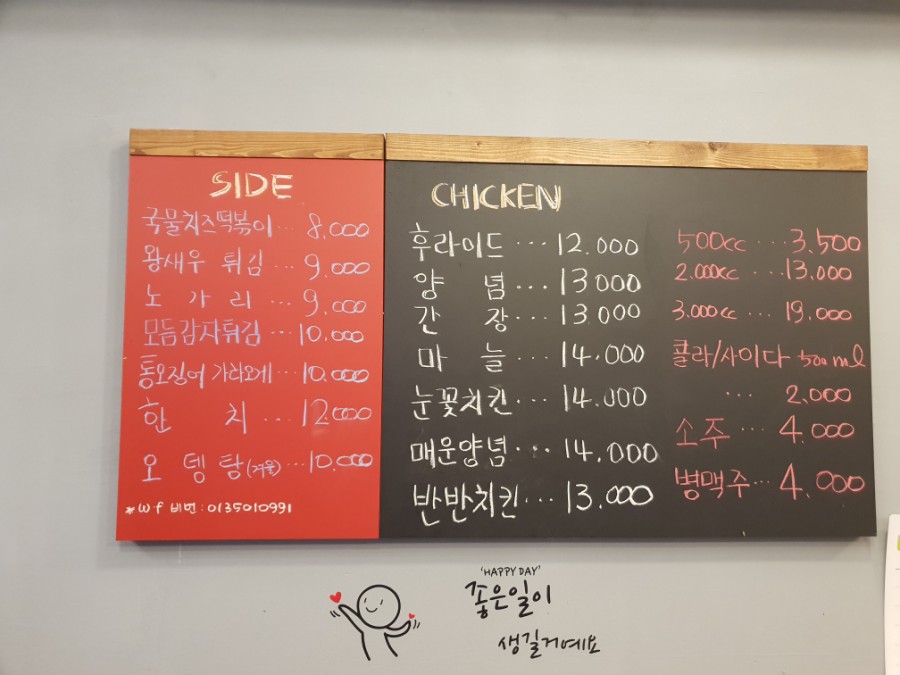 SIDE
국물치즈떡볶이... 8,000
왕새우 튀김... 9,000
노가리... 9,000
모듬감자튀김... 10,000
통오징어 가라아게... 10,000
한치... 12,000
오뎅탕(겨울)... 10,000
*wf 비번: 0135010991
CHICKEN
후라이드... 12.000
양념... 13000
간장... 13.000
마늘... 14.000
눈꽃치킨... 14.000
매운양념... 14,000
반반치킨... 13.000
500cc... 3.500
2.000cc... 13.000
3.000cc... 19.000
콜라/사이다 500ml
... 2.000
소주... 4.000
병맥주... 4.000
'HAPPY DAY'
좋은일이
생길거예요